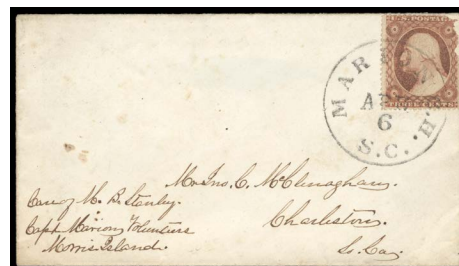 U.S. POSTAGE
THREE CENTS
MARION
APR
6
S.C.
Mr Jno. C. McClenaghan.
Charleston.
So. Ca.
Care of M. B. Stanley.
Capt Marion Volunteers
Morris Island.